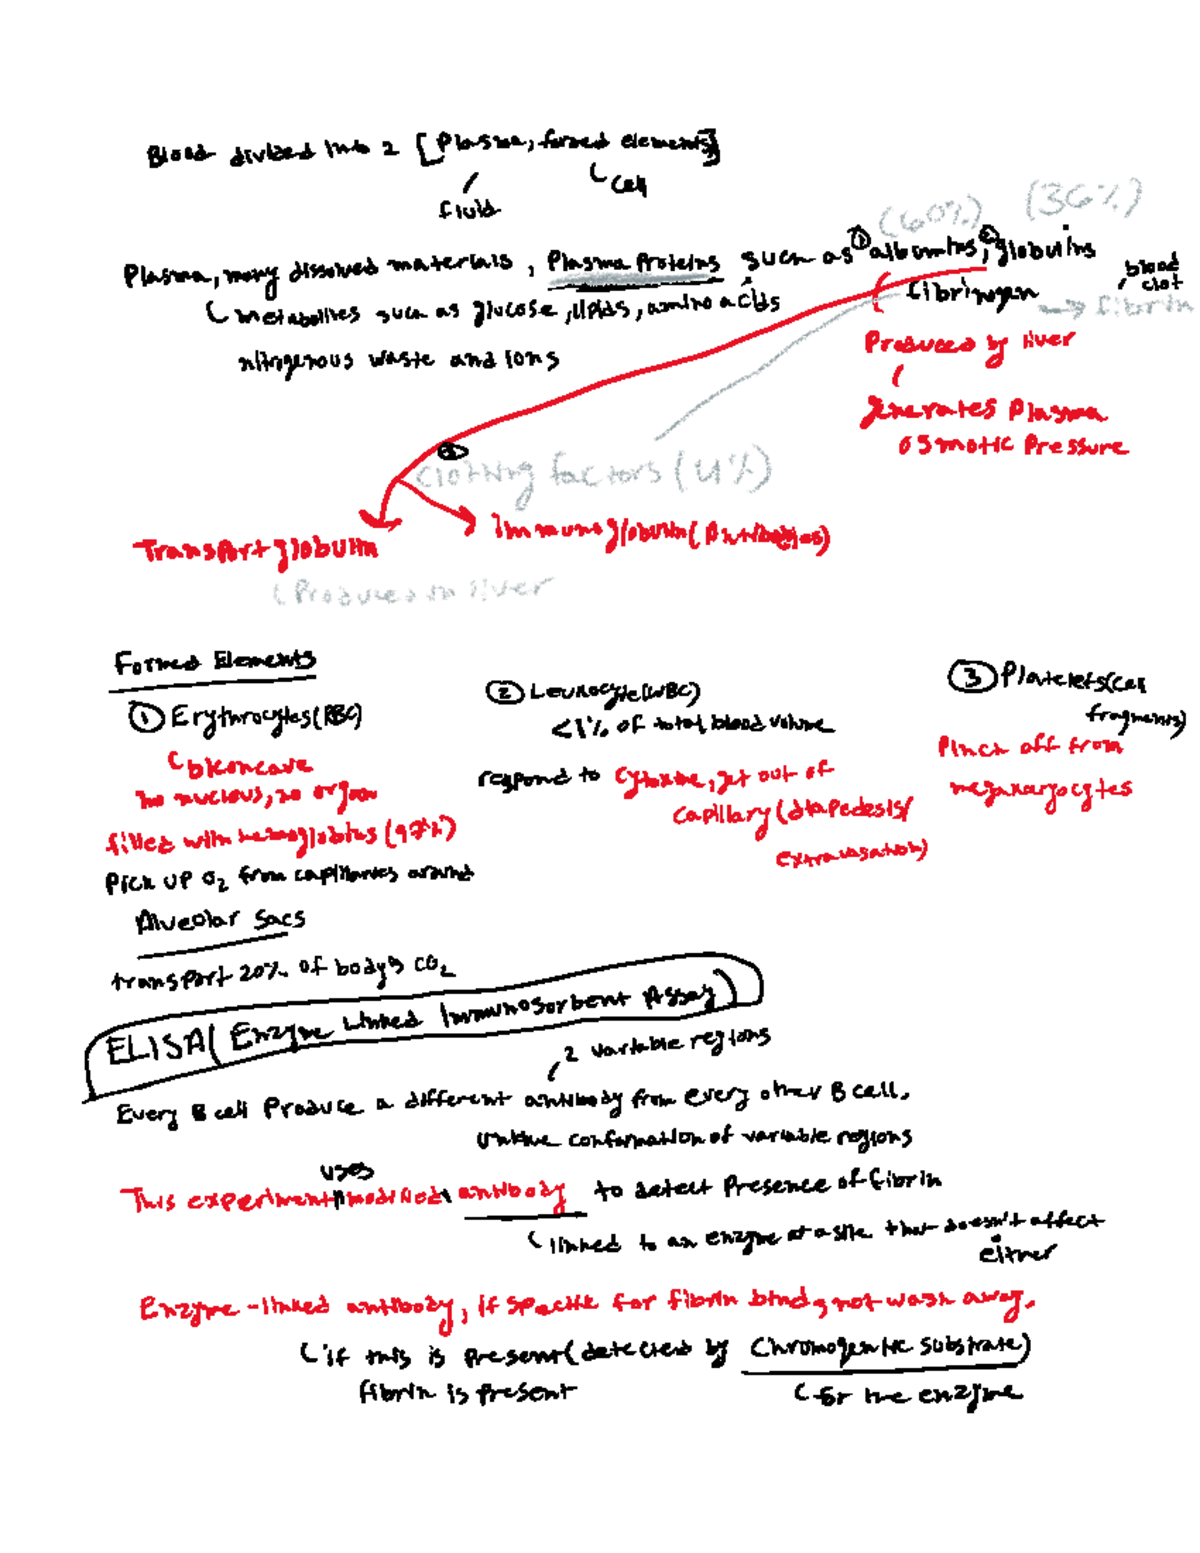 Blood divided into 2 [Plasma, formed elements]
fluid
cell
(60%) (36%)
Plasma, many dissolved materials, Plasma Proteins such as ① albumins, ② globulins
fibrinogen → fibrin
blood clot
metabolites such as glucose, lipids, amino acids
nitrigenous waste and ions
Produced by liver
generates Plasma
osmotic Pressure
③ Clotting factors (4%)
Transport globulin
Immunoglobulin (Antibodies)
(Produced in liver
Formed Elements
① Erythrocytes (RBC)
biconcave
no nucious, no organ
filled with hemoglobins (97%)
Pick up O2 from capillaries around
Alveolar Sacs
transport 20% of body's CO2
② Leukocyte (WBC)
<1% of total blood volume
respond to cytokine, get out of
capillary (diapedesis/
extravasation)
③ Platelets (cell
fragments)
Pinch off from
megakaryocytes
ELISA (Enzyme Linked Immunosorbent Assay)
2 variable regions
Every B cell Produce a different antibody from every other B cell.
unique conformation of variable regions
uses
This experiment modified antibody to detect Presence of fibrin
linked to an enzyme at a site that doesn't affect
either
Enzyme-linked antibody, if specific for fibrin binds, not wash away.
if this is present (detected by Chromogentic substrate)
fibrin is present
for the enzyme